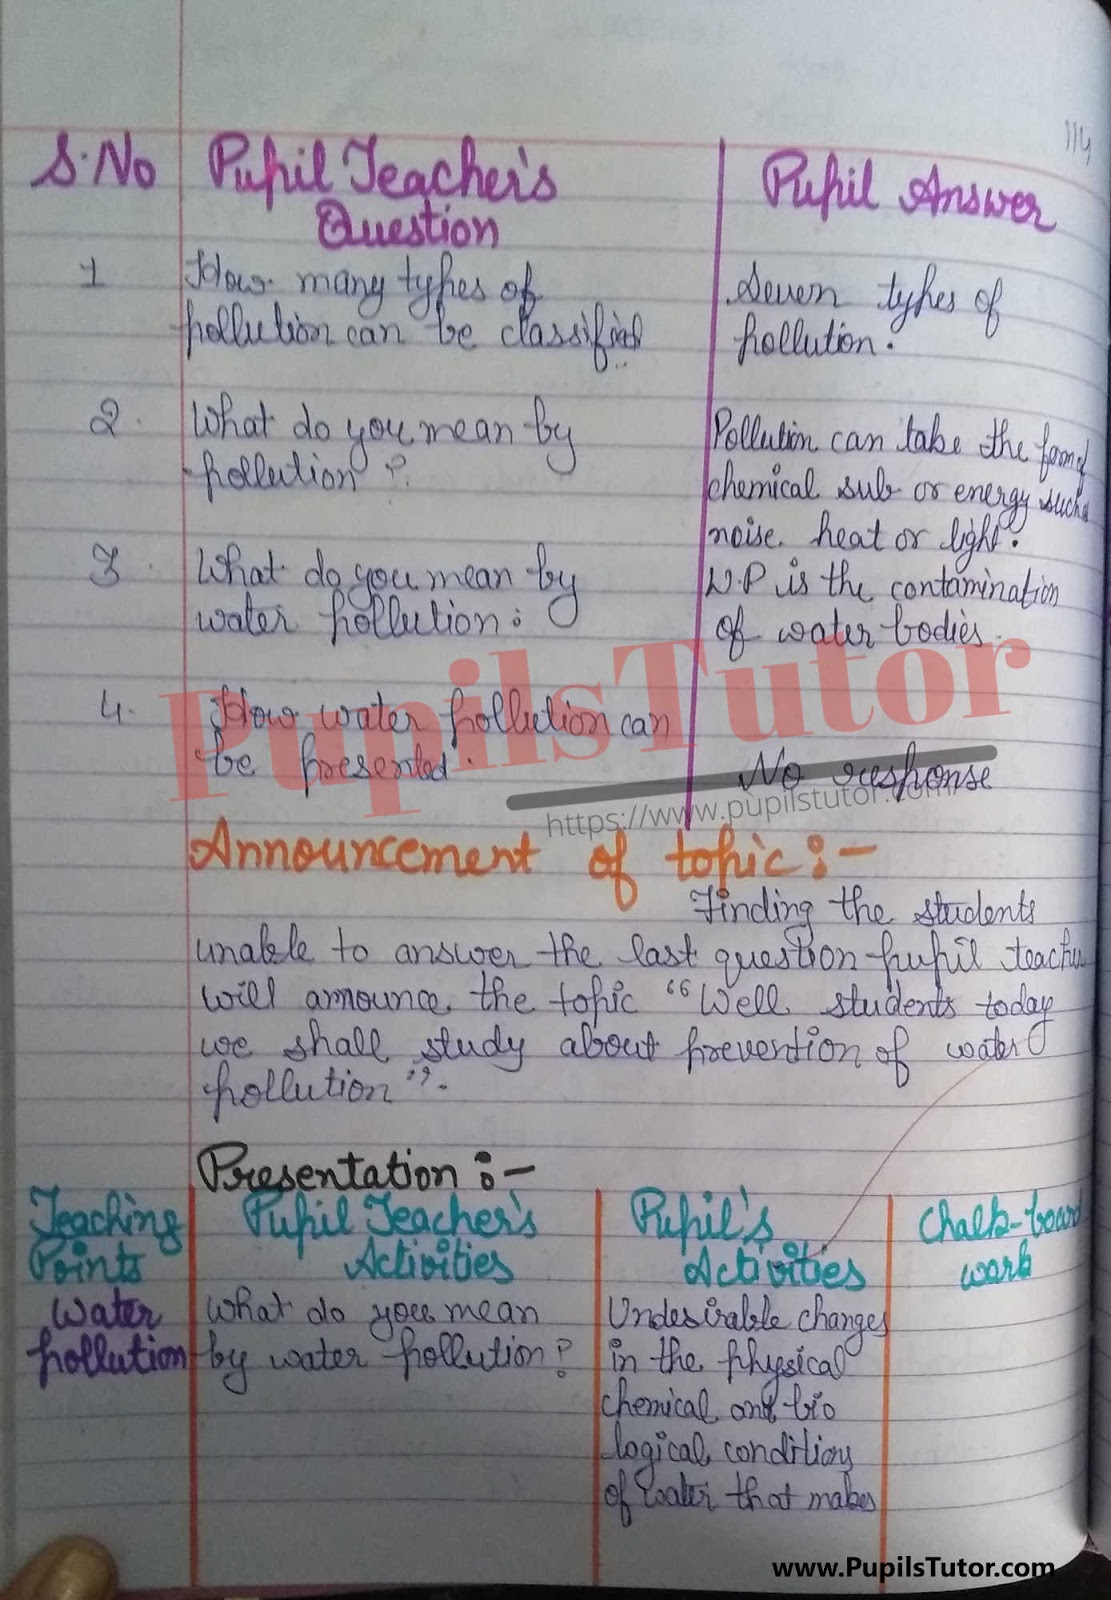 114
S.No Pupil Teacher's Question Pupil Answer
1 How many types of pollution can be classified Seven types of pollution.
2. What do you mean by pollution? Pollution can take the form of chemical sub or energy such noise heat or light.
3. What do you mean by water pollution: W.P is the contamination of water bodies.
4. How water pollution can be presented. No response
PupilsTutor
https://www.pupilstutor.com/
Announcement of topic:-
Finding the students
unable to answer the last question pupil teacher
will announce the topic "Well students today
we shall study about prevention of water
pollution".
Presentation:-
Teaching Points Pupil Teacher's Activities Pupil's Activities Chalk-board work
Water pollution What do you mean by water pollution? Undesirable changes
in the physical
chemical and bio
logical conditions
of water that makes
www.PupilsTutor.com